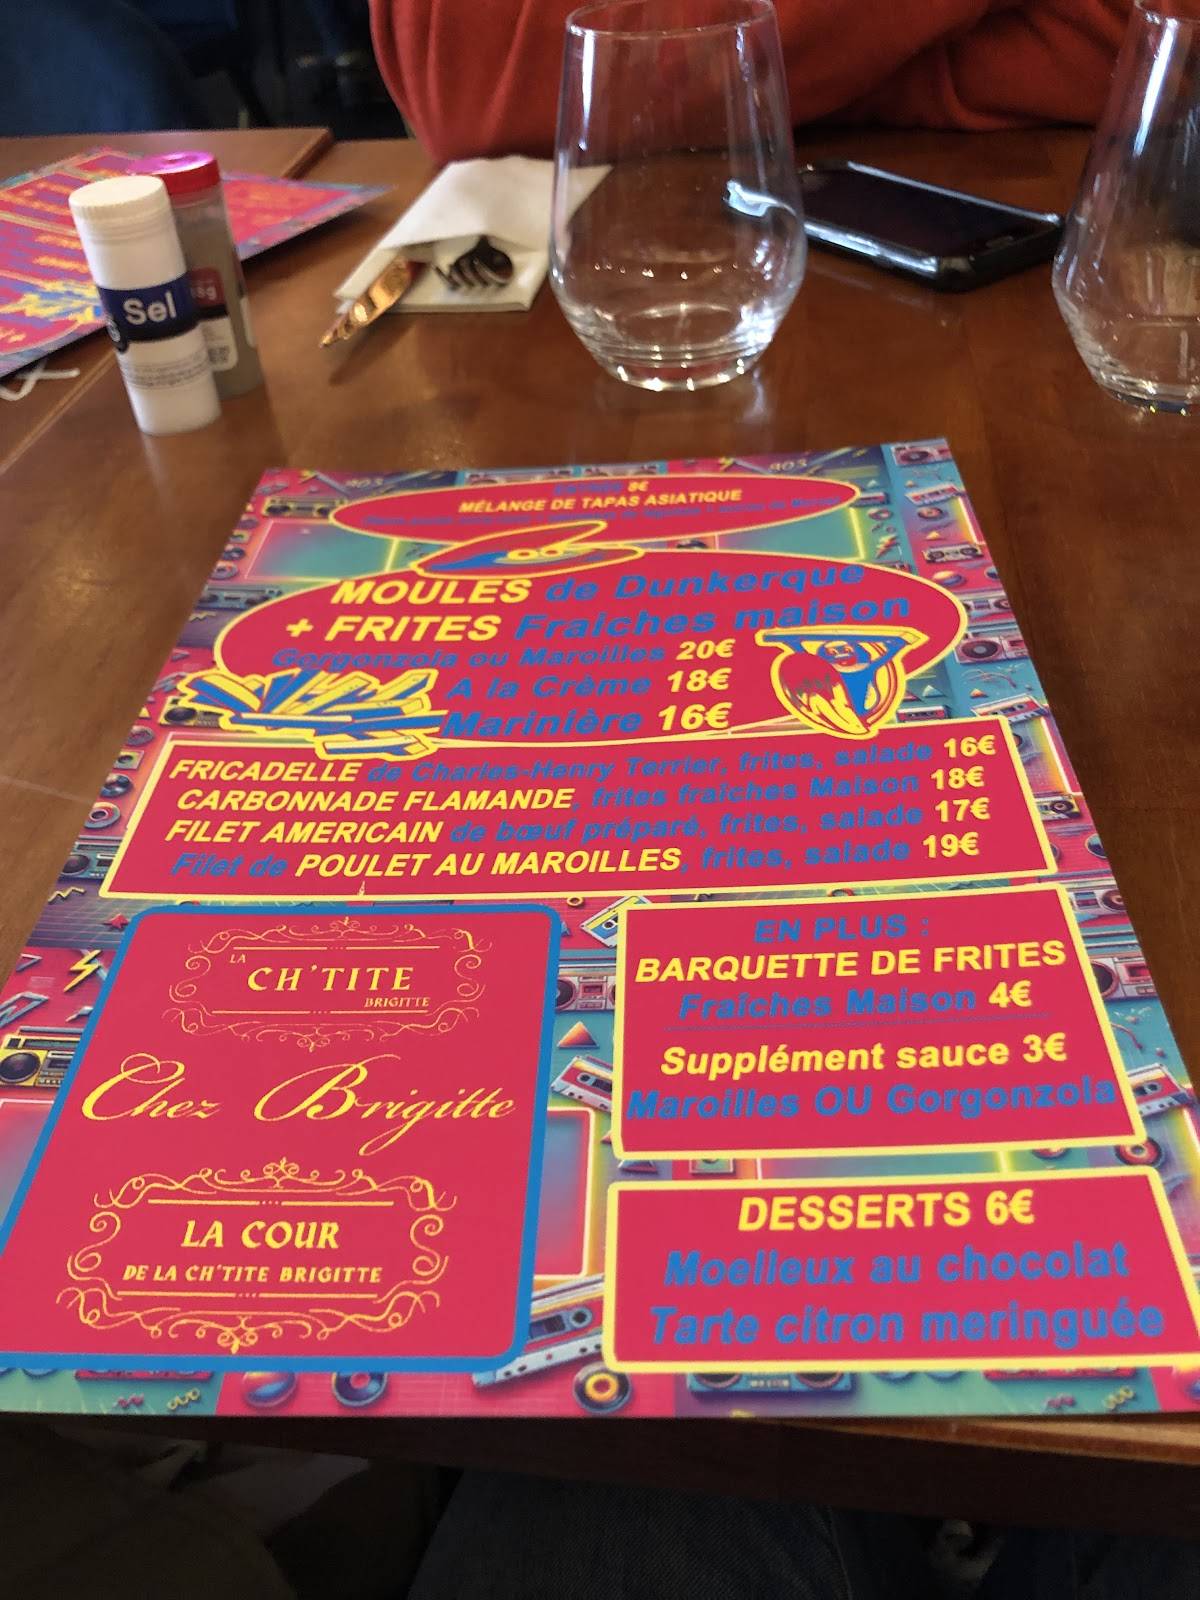 Sel
8€
MÉLANGE DE TAPAS ASIATIQUE
MOULES de Dunkerque
+ FRITES Fraiches maison
Gorgonzola ou Maroilles 20€
A la Crème 18€
Marinière 16€
FRICADELLE de Charles-Henry Terrier, frites, salade 16€
CARBONNADE FLAMANDE, frites fraîches Maison 18€
FILET AMERICAIN de bœuf préparé, frites, salade 17€
Filet de POULET AU MAROILLES, frites, salade 19€
LA
CH'TITE
BRIGITTE
Chez Brigitte
LA COUR
DE LA CH'TITE BRIGITTE
EN PLUS :
BARQUETTE DE FRITES
Fraîches Maison 4€
Supplément sauce 3€
Maroilles OU Gorgonzola
DESSERTS 6€
Moelleux au chocolat
Tarte citron meringuée